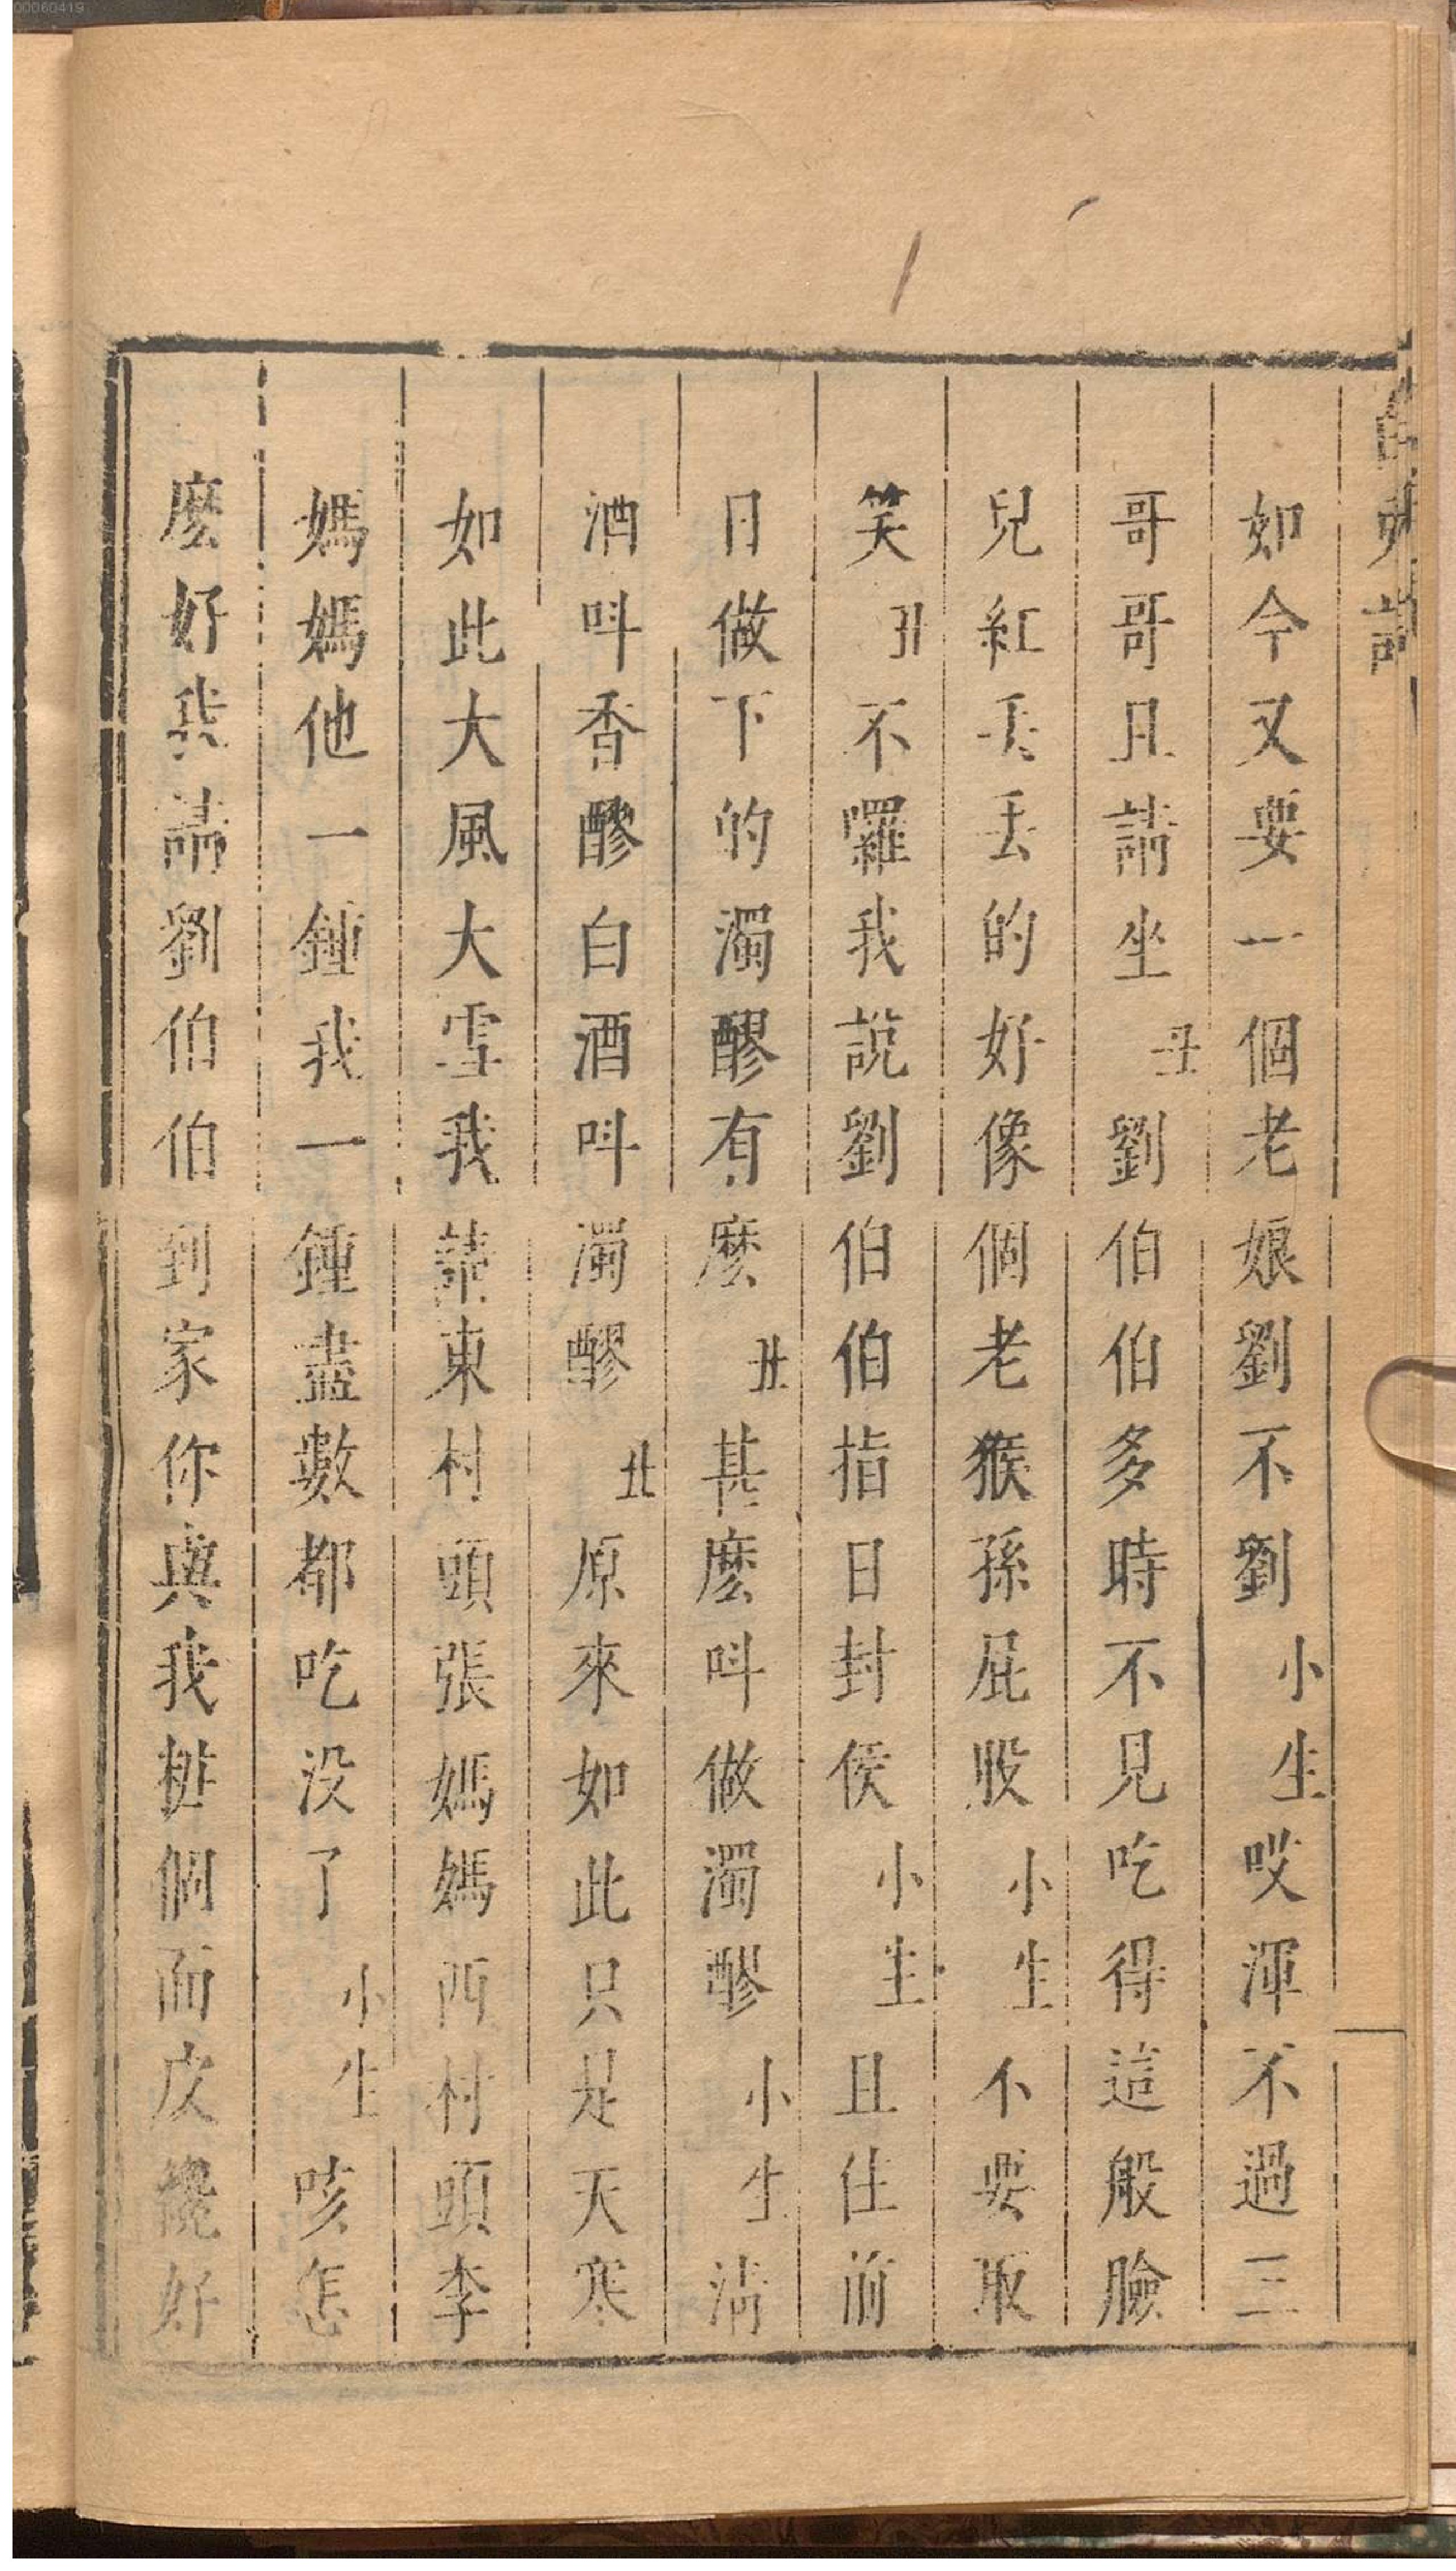 00060419
如今又要一個老娘劉不劉小生哎渾不過三
哥哥且請坐丑劉伯伯多時不見吃得這般臉
兒紅丢丢的好像個老猴孫屁股小生不要取
笑丑不囉我說劉伯伯指日封侯小生且住前
日做下的濁醪有麽丑甚麽呌做濁醪小生淸
酒呌香醪白酒呌濁醪丑原來如此只是天寒
如此大風大雪我請東村頭張媽媽西村頭李
媽媽他一鍾我一鍾盡數都吃没了小生咳怎
麽好我請劉伯伯到家你與我粧個面皮纔好